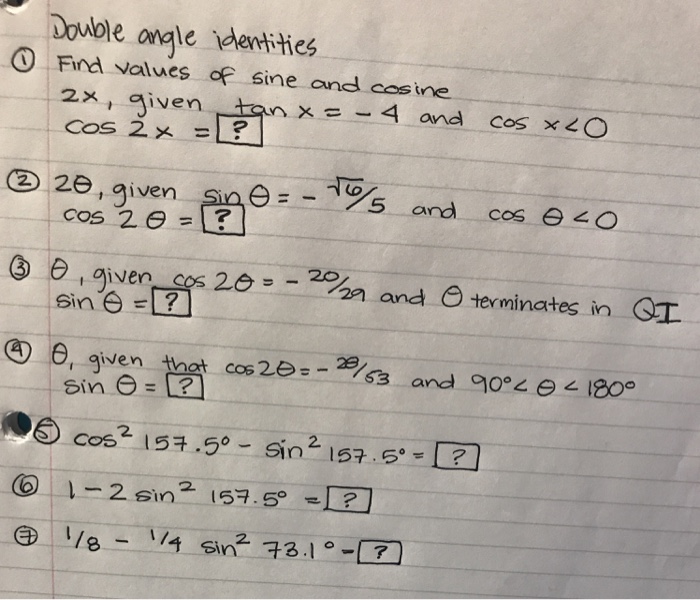 Double angle identities
① Find values of sine and cosine
2x, given tan x = - 4 and cos x < 0
cos 2x = ?
② 2θ, given sin θ = - √6/5 and cos θ < 0
cos 2θ = ?
③ θ, given cos 2θ = - 20/29 and θ terminates in QI
sin θ = ?
④ θ, given that cos 2θ = - 28/53 and 90° < θ < 180°
sin θ = ?
⑤ cos² 157.5° - sin² 157.5° = ?
⑥ 1 - 2 sin² 157.5° = ?
⑦ 1/8 - 1/4 sin² 73.1° - ?